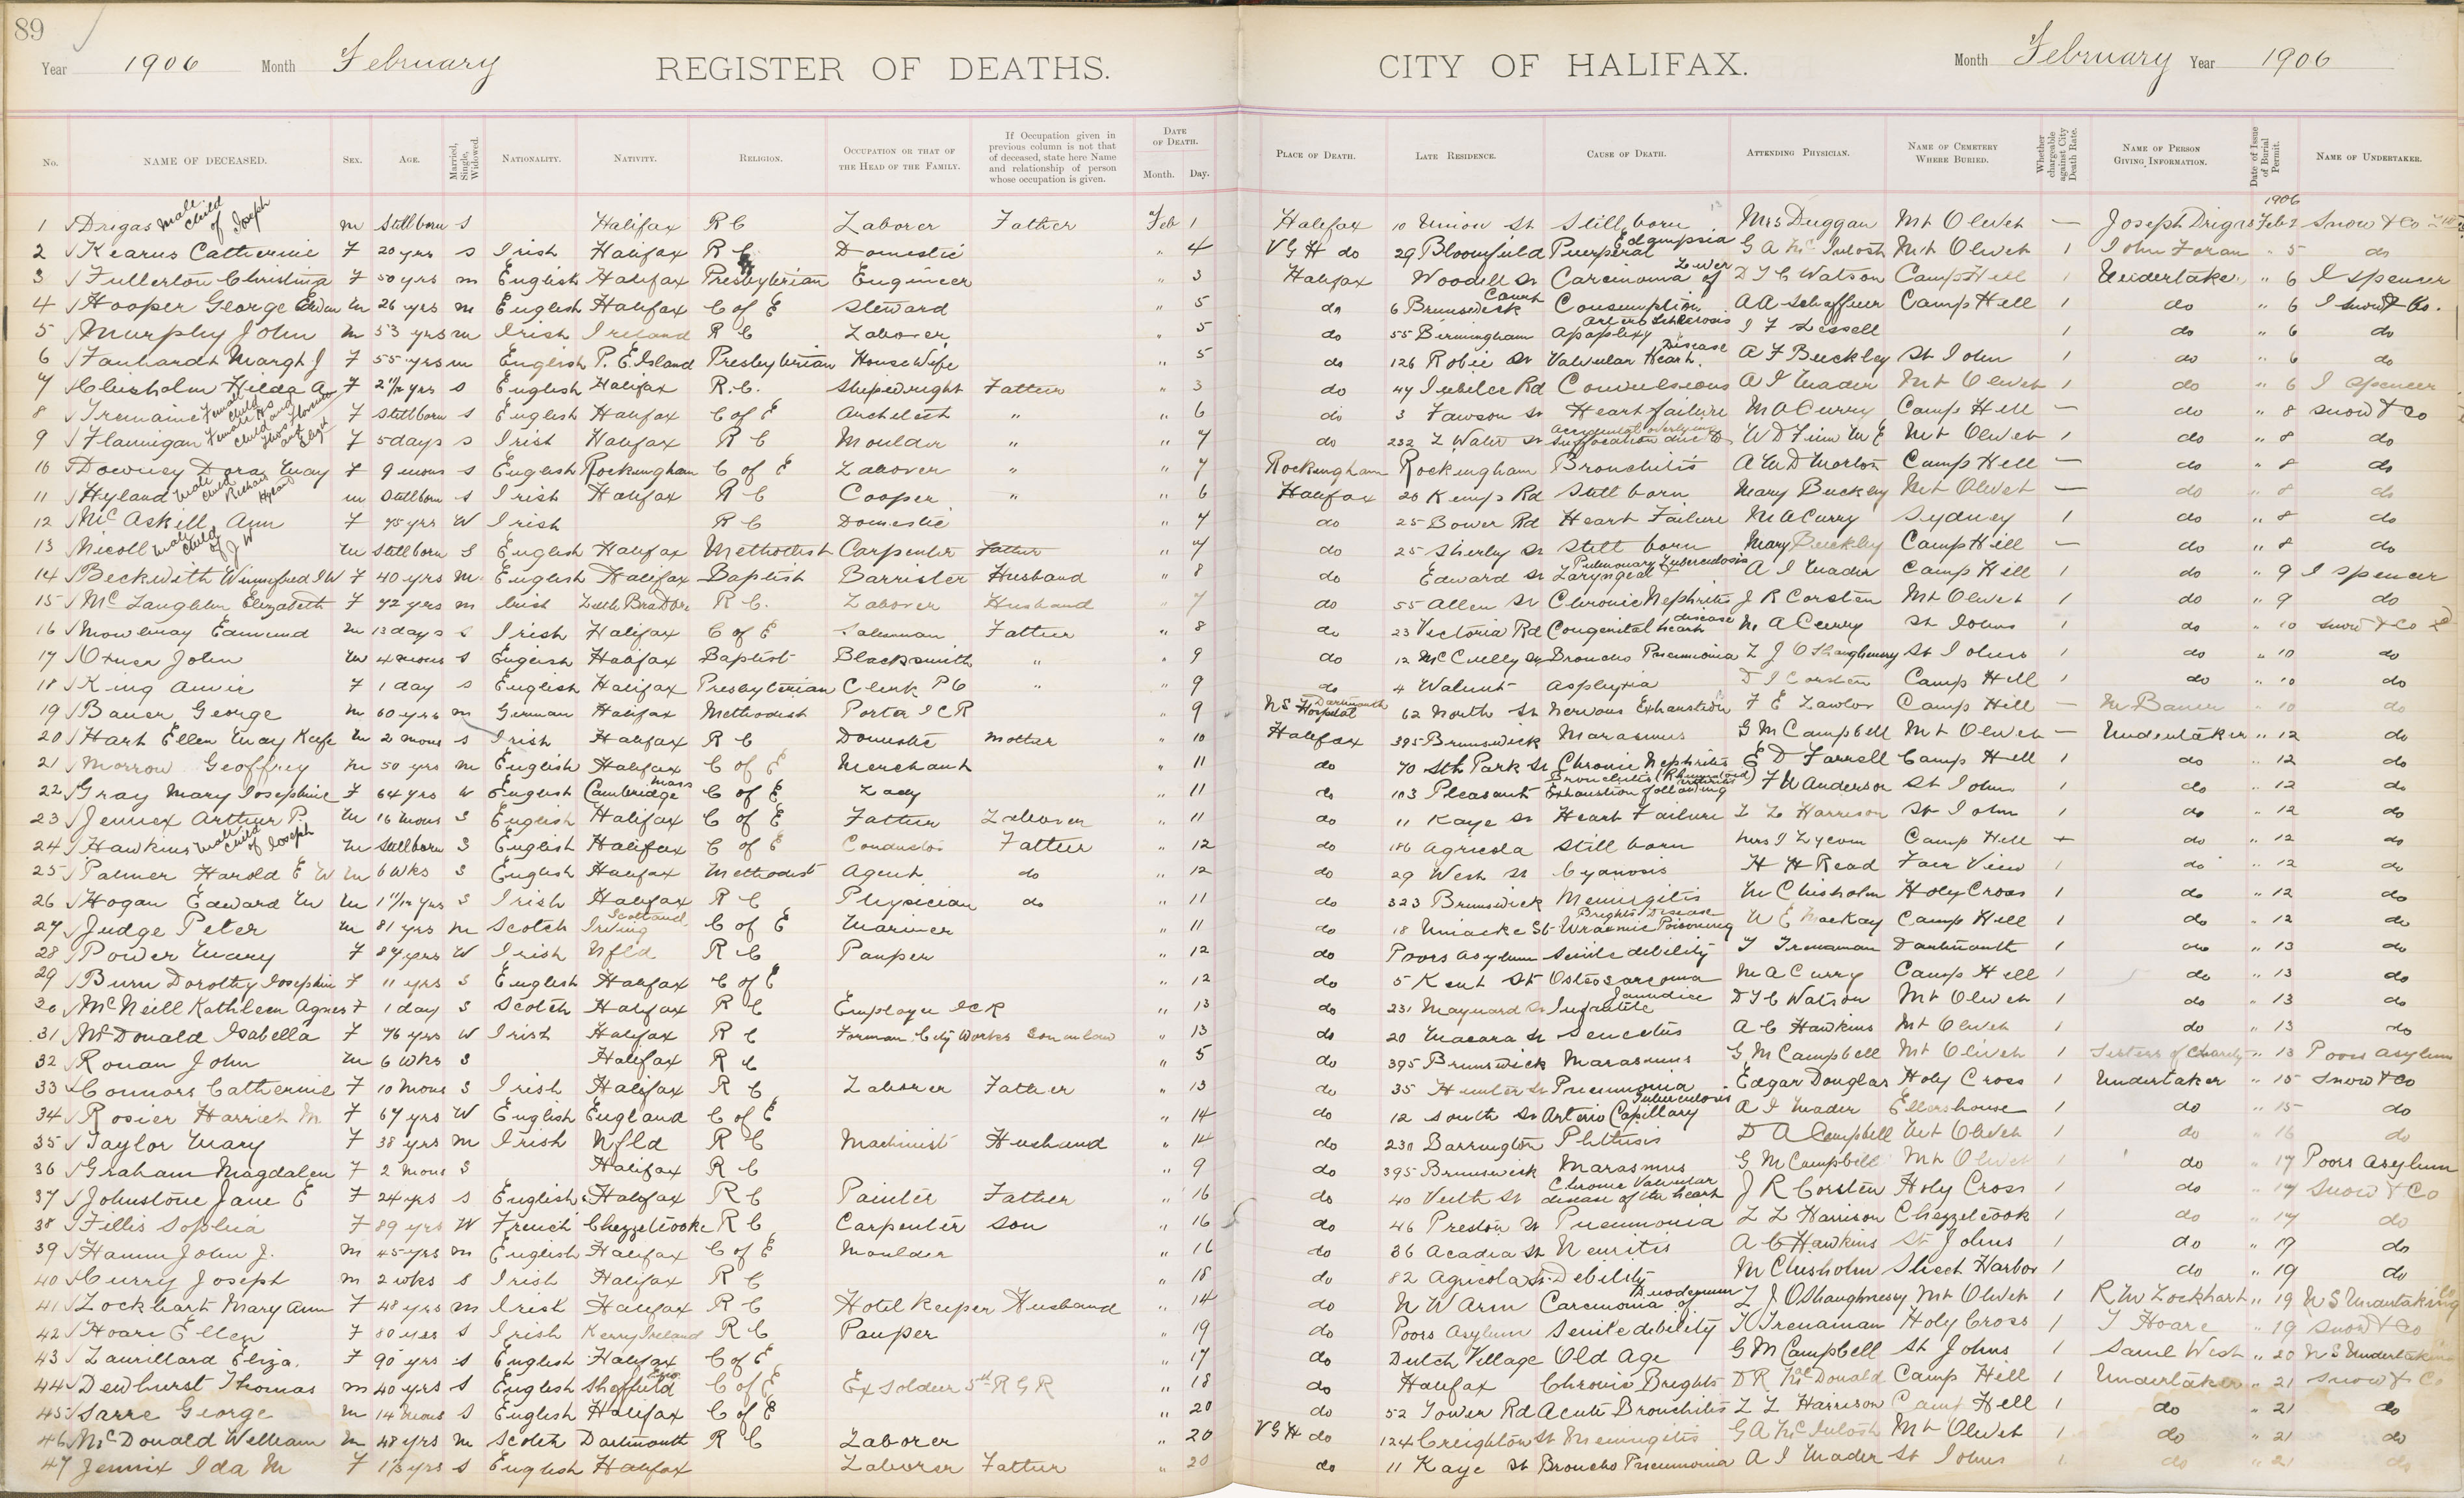 89
Year 1906 Month February REGISTER OF DEATHS. CITY OF HALIFAX. Month February Year 1906
No. NAME OF DECEASED. SEX. AGE. Married, Single, Widowed. NATIONALITY. NATIVITY. RELIGION. OCCUPATION OR THAT OF THE HEAD OF THE FAMILY. If Occupation given in previous column is not that of deceased, state here Name and relationship of person whose occupation is given. DATE OF DEATH. Month. Day. PLACE OF DEATH. LATE RESIDENCE. CAUSE OF DEATH. ATTENDING PHYSICIAN. NAME OF CEMETERY WHERE BURIED. Whether chargeable against City Death Rate. NAME OF PERSON GIVING INFORMATION. Date of Issue of Burial Permit. NAME OF UNDERTAKER.
1 Drigas male child of Joseph m Stillborn s Halifax R C Laborer Father Feb 1 Halifax 10 Union St Still born Mrs Duggan Mt Olivet — Joseph Drigas 1906 Feb 2 Snow & Co
2 Kearns Catherine F 20 yrs s Irish Halifax R C Domestic " 4 V G H do 29 Bloomfield Puerperal G A McIntosh Mt Olivet 1 John Foran " 5 do
3 Fullerton Christina F 50 yrs m English Halifax Presbyterian Engineer " 3 Halifax Woodill St Carcinoma of Liver D T C Watson Camp Hill 1 Undertaker " 6 J Spencer
4 Hooper George Edwin m 26 yrs m English Halifax C of E Steward " 5 do 6 Brunswick Court Consumption A A Schaffner Camp Hill 1 do " 6 Snow & Co.
5 Murphy John m 53 yrs m Irish Ireland R C Laborer " 5 do 55 Birmingham Apoplexy Arterio Sclerosis I F Lessell do " 6 do
6 Fanhardt Margt J F 55 yrs m English P. E. Island Presbyterian House Wife " 5 do 126 Robie St Valvular Heart Disease A F Buckley St John 1 do " 6 do
7 Chisholm Hilda A F 2 11/12 yrs s English Halifax R. C. Shipwright Father " 3 do 47 Jubilee Rd Convulsions A I Mader Mt Olivet 1 do " 6 J Spencer
8 Tremaine Female child F Stillborn s English Halifax C of E Architect " " 6 do 3 Fawson St Heart failure M A Curry Camp Hill — do " 8 Snow & Co
9 Flannigan Female child F 5 days s Irish Halifax R C Moulder " " 7 do 232 L Water St Accidental overlying suffocation due to W D Finn M E Mt Olivet 1 do " 8 do
10 Downey Dora May F 9 mons s English Rockingham C of E Laborer " " 7 Rockingham Rockingham Bronchitis A M D Morton Camp Hill — do " 8 do
11 Hyland male child Richard Hyland m Stillborn s Irish Halifax R C Cooper " " 6 Halifax 20 Kemp Rd Still born Mary Buckley Mt Olivet — do " 8 do
12 McAskill Ann F 75 yrs W Irish R C Domestic " 7 do 25 Bower Rd Heart Failure M A Curry Sydney 1 do " 8 do
13 Nicoll male child of J W m Stillborn S English Halifax Methodist Carpenter Father " 7 do 25 Shirley St Still born Mary Buckley Camp Hill — do " 8 do
14 Beckwith Winnifred J W F 40 yrs m English Halifax Baptist Barrister Husband " 8 do Edward St Laryngeal & Pulmonary Tuberculosis A I Mader Camp Hill 1 do " 9 J Spencer
15 McLaughlin Elizabeth F 72 yrs m Irish Little Bras Dor R C. Laborer Husband " 7 do 55 Allen St Chronic Nephritis J R Corston Mt Olivet 1 do " 9 do
16 Mowbray Edmund m 13 days s Irish Halifax C of E Salesman Father " 8 do 23 Victoria Rd Congenital heart disease M A Curry St Johns 1 do " 10 Snow & Co
17 John m 4 mons s English Halifax Baptist Blacksmith " " 9 do 12 McCully St Broncho Pneumonia L J O'Shaughnessy St Johns 1 do " 10 do
18 King Annie F 1 day s English Halifax Presbyterian Clerk P O " " 9 do 4 Walnut Asphyxia Corston Camp Hill 1 do " 10 do
19 Bauer George m 60 yrs m German Halifax Methodist Porter I C R " 9 N S Hospital Dartmouth 62 North St Nervous Exhaustion F E Lawlor Camp Hill — M Bauer " 10 do
20 Hart Ellen May Keefe m 2 mons s Irish Halifax R C Domestic Mother " 10 Halifax 395 Brunswick Marasmus G M Campbell Mt Olivet — Undertaker " 12 do
21 Morrow Geoffrey m 50 yrs m English Halifax C of E Merchant " 11 do 70 Sth Park St Chronic Nephritis E D Farrell Camp Hill 1 do " 12 do
22 Gray Mary Josephine F 64 yrs W English Cambridge Mass C of E Lady " 11 do 103 Pleasant Bronchitis (Rheumatoid arthritis) Exhaustion following F W Anderson St Johns 1 do " 12 do
23 Jennex Arthur P. m 16 mons S English Halifax C of E Father Laborer " 11 do 11 Kaye St Heart Failure L L Harrison St John 1 do " 12 do
24 Hawkins male child of Joseph m Stillborn S English Halifax C of E Conductor Father " 12 do 186 Agricola Still born Mrs J Lycom Camp Hill do " 12 do
25 Palmer Harold E W m 6 wks s English Halifax Methodist Agent do " 12 do 29 West St Cyanosis H H Read Fair View 1 do " 12 do
26 Hogan Edward M m 1 11/12 yrs S Irish Halifax R C Physician do " 11 do 323 Brunswick Meningitis M Chisholm Holy Cross 1 do " 12 do
27 Judge Peter m 81 yrs m Scotch Irving Scotland C of E Mariner " 11 do 18 Uniacke St Brights Disease Uraemic Poisoning W E MacKay Camp Hill 1 do " 12 do
28 Power Mary F 87 yrs W Irish Nfld R C Pauper " 12 do Poors Asylum Senile debility T Trenaman Dartmouth 1 do " 13 do
29 Burn Dorothy Josephine F 11 yrs S English Halifax C of E " 12 do 5 Kent St Osteosarcoma M A Curry Camp Hill 1 do " 13 do
30 McNeill Kathleen Agnes F 1 day S Scotch Halifax R C Employe I C R " 13 do 231 Maynard St Infantile Jaundice D T C Watson Mt Olivet 1 do " 13 do
31 McDonald Isabella F 76 yrs W Irish Halifax R C Forman City Works Son in law " 13 do 20 Macara St Senectus A C Hawkins Mt Olivet 1 do " 13 do
32 Ronan John m 6 wks s Halifax R C " 5 do 395 Brunswick Marasmus G M Campbell Mt Olivet 1 Sisters of Charity " 13 Poors Asylum
33 Connors Catherine F 10 mons S Irish Halifax R C Laborer Father " 13 do 35 Hunter St Pneumonia Edgar Douglas Holy Cross 1 Undertaker " 15 Snow & Co
34 Rosier Harriet M. F 67 yrs W English England C of E " 14 do 12 South St Arterio Capillary A I Mader Ellershouse 1 do " 15 do
35 Taylor Mary F 38 yrs m Irish Nfld R C Machinist Husband " 14 do 230 Barrington Phthisis D A Campbell Mt Olivet 1 do " 16 do
36 Graham Magdalen F 2 mons S Halifax R C " 9 do 395 Brunswick Marasmus G M Campbell Mt Olivet 1 do " 17 Poors Asylum
37 Johnstone Jane E F 24 yrs s English Halifax R C Painter Father " 16 do 40 Veith St Chronic Valvular disease of the heart J R Corston Holy Cross 1 do " 17 Snow & Co
38 Fillis Sophia F 89 yrs W French Chezzetcooke R C Carpenter Son " 16 do 46 Preston St Pneumonia L L Harrison Chezzetcook 1 do " 17 do
39 Hamm John J. m 45 yrs m English Halifax C of E Moulder " 16 do 36 Acadia St Neuritis A C Hawkins St Johns 1 do " 19 do
40 Curry Joseph m 2 wks s Irish Halifax R C " 18 do 82 Agricola St Debility M Chisholm Sheet Harbor 1 do " 19 do
41 Lockhart Mary Ann F 48 yrs m Irish Halifax R C Hotel Keeper Husband " 14 do N W Arm Carcinoma of Duodenum L J O'Shaughnessy Mt Olivet 1 R M Lockhart " 19 N S Undertaking Co
42 Hoare Ellen F 80 yrs s Irish Kerry Ireland R C Pauper " 19 do Poors Asylum Senile debility T Trenaman Holy Cross 1 T Hoare " 19 Snow & Co
43 Laurillard Eliza. F 90 yrs s English Halifax C of E " 17 do Dutch Village Old Age G M Campbell St Johns 1 Saml West " 20 N S Undertaking
44 Dewhurst Thomas m 40 yrs S English Sheffield Eng. C of E Ex Soldier 5th R G R " 18 do Halifax Chronic Brights D R McDonald Camp Hill 1 Undertaker " 21 Snow & Co
45 Sarre George m 14 mons S English Halifax C of E " 20 do 52 Tower Rd Acute Bronchitis L L Harrison Camp Hill 1 do " 21 do
46 McDonald William m 48 yrs m Scotch Dartmouth R C Laborer " 20 V G H do 124 Creighton St Meningitis G A McIntosh Mt Olivet 1 do " 21 do
47 Jennix Ida M F yrs s English Halifax Laborer Father " 20 do 11 Kaye St Broncho Pneumonia A I Mader St Johns 1 do " 21 do